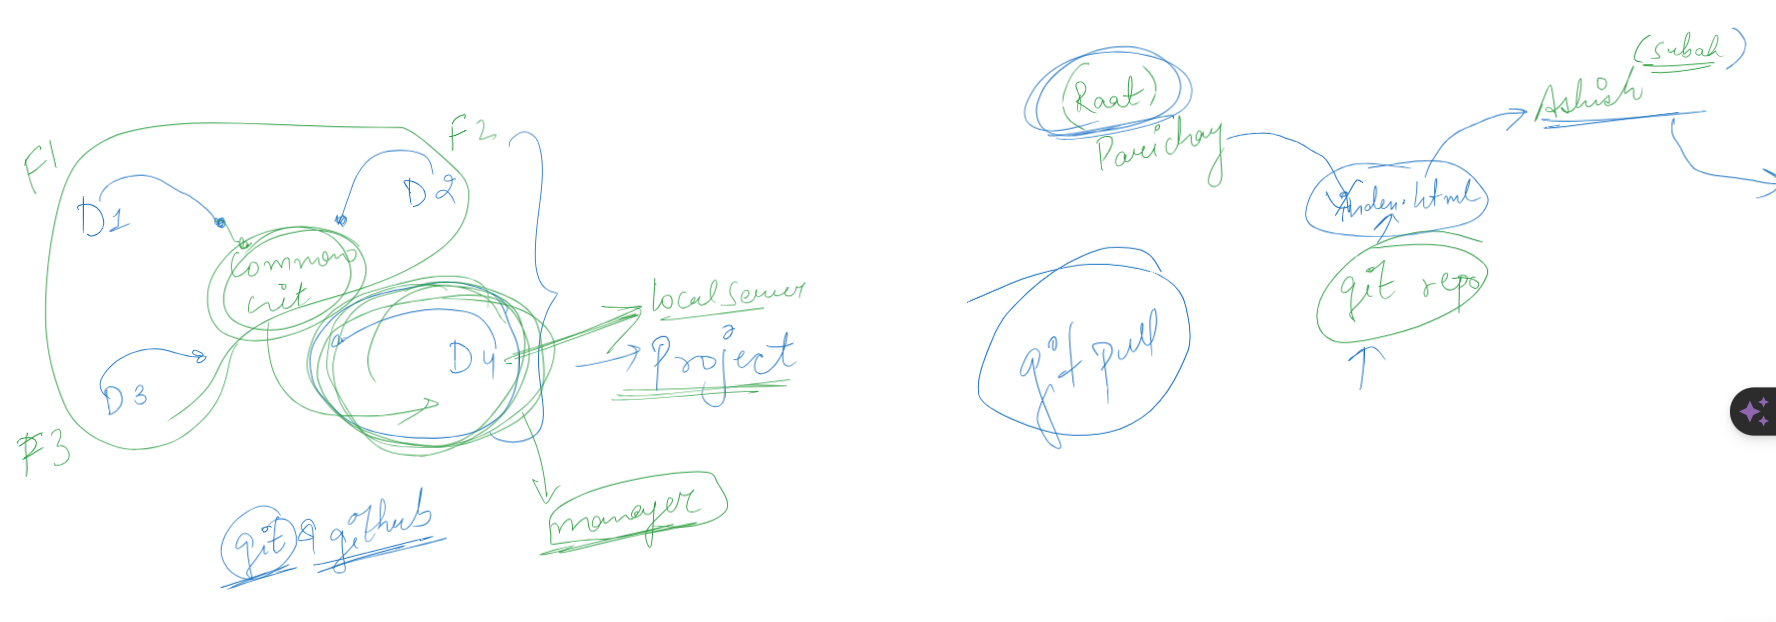 F1
F2
D1
D2
Common
D3
D4
F3
local server
Project
manager
git & github
(Raat)
Parichay
(subah)
Ashish
index.html
git repo
git pull